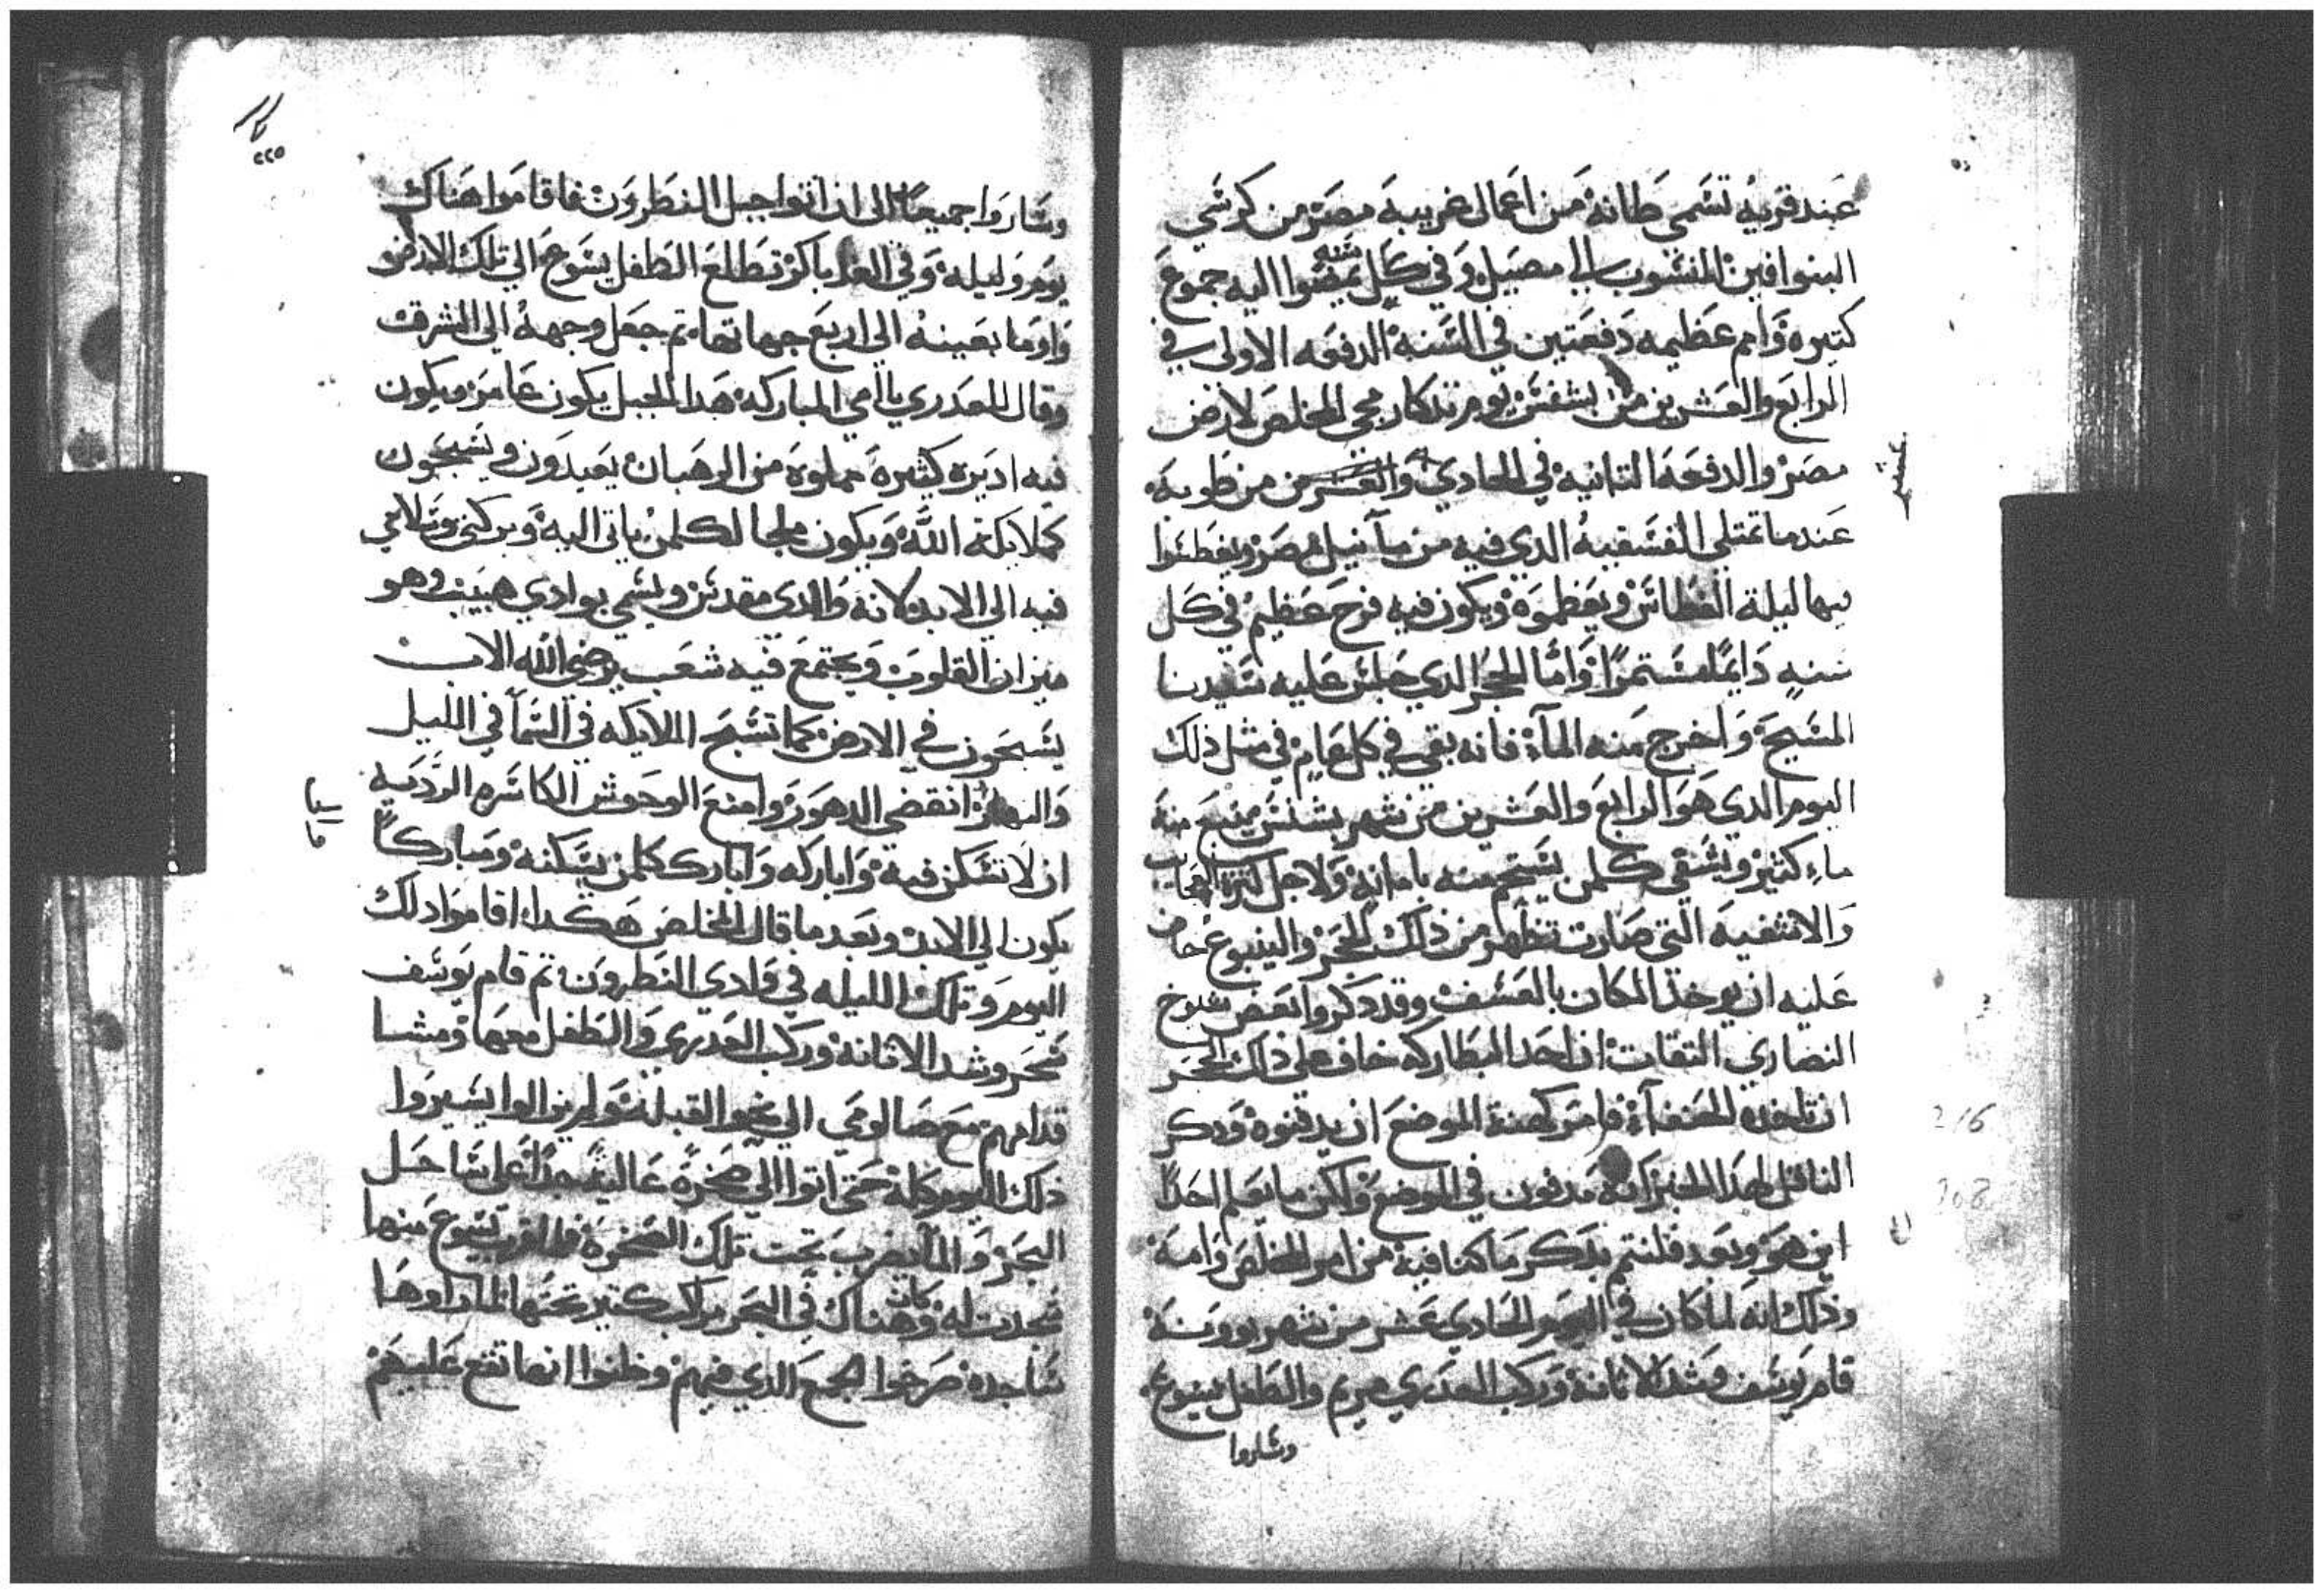 عند قرية تسمى طانة من اعمال غربية مصر من كرسي
البنوافين المنسوب الى مصيل وفي كل سنه يمضوا اليه جموع
كتيره وامم عظيمه دفعتين في السنة الدفعه الاولى في
الرابع والعشرين من بشنس يوم تدكار مجي المخلص لارض
مصر والدفعة التانية في الحادي والعشرين من طوبة
عندما تمتلي الفسقية الدي فيه من مآ نيل مصر ويغطسوا
بها ليلة الغطاس ويعظموه ويكون فيه فرح عظيم في كل
سنة دايما مستمرا واما الحجر الدي جلس عليه سيدنا
المسيح واخرج منه المآء فانه بقي في كل عام في مثل ذلك
اليوم الدي هو الرابع والعشرين من شهر بشنس ينبع منه
ماء كثير ويشفي كلمن يستحم منه بامانة ولاجل كترة العجايب
والاشفية التي صارت تظهر من ذلك الحجر والينبوع خاف
عليه ان يوخد المكان بالعسف وقد دكروا بعض شيوخ
النصارى التقات ان احد البطاركه خاف على ذلك الحجر
ان تاخده الحنفآء فامر كهنة الموضع ان يدفنوه ودكر
الناقل لهدا الخبر انه مدفون في الموضع ولكن ما يعلم احدا
اين هو وبعد فلنتم بدكر ما كنا فيه من امر المخلص وامه
وذلك انه لما كان في اليوم الحادي عشر من شهر بوونه
قام يوسف وشد الاتانة وركب العدري مريم والطفل يسوع
وساروا
وساروا جميعا الى ان اتوا جبل النطرون فاقاموا هناك
يوم وليلة وفي الغد باكر تطلع الطفل يسوع الي تلك الارض و
واوما بعينه الى اربع جهاتها تم جعل وجهه الى المشرق
وقال للعدري يا امي المباركة هدا الجبل يكون عامر ويكون
فيه اديرة كثيرة مملوة من الرهبان يعبدون ويسبحون
كملايكة الله ويكون ملجا لكلمن ياتي اليه وبركتي وسلامي
فيه الى الابد لانه وادى مقدس ويسمي بوادي هبيب وهو
ميزان القلوب ويجتمع فيه شعب يرضي الله الاب
يسبحون في الارض كما تسبح الملايكه في السمآ في الليل
والنهار انقضي الدهور وامنع الوحوش الكاسره الردية
ان لا تسكن فيه واباركه وابارك كلمن يسكنه ومباركا
يكون الى الابد وبعد ما قال المخلص هكدا اقاموا دلك
اليوم وتلك الليله في وادي النطرون تم قام يوسف
سحر وشد الاتانة وركب العدري والطفل معها ومشا
قدامهم مع صالومي الى نحو القبلة ولم يزالوا يسيروا
ذلك اليوم كله حتى اتوا الي صخرة عالية جدا على ساحل
البحر والمآ يضرب تحت تلك الصخرة فلما قرب يسوع منها
سجدت له وكان هناك في البحر مراكب كتير تحتها فلما راوها
ساجدة صرخوا الجمع الدي فيهم وظنوا انها تقع عليهم